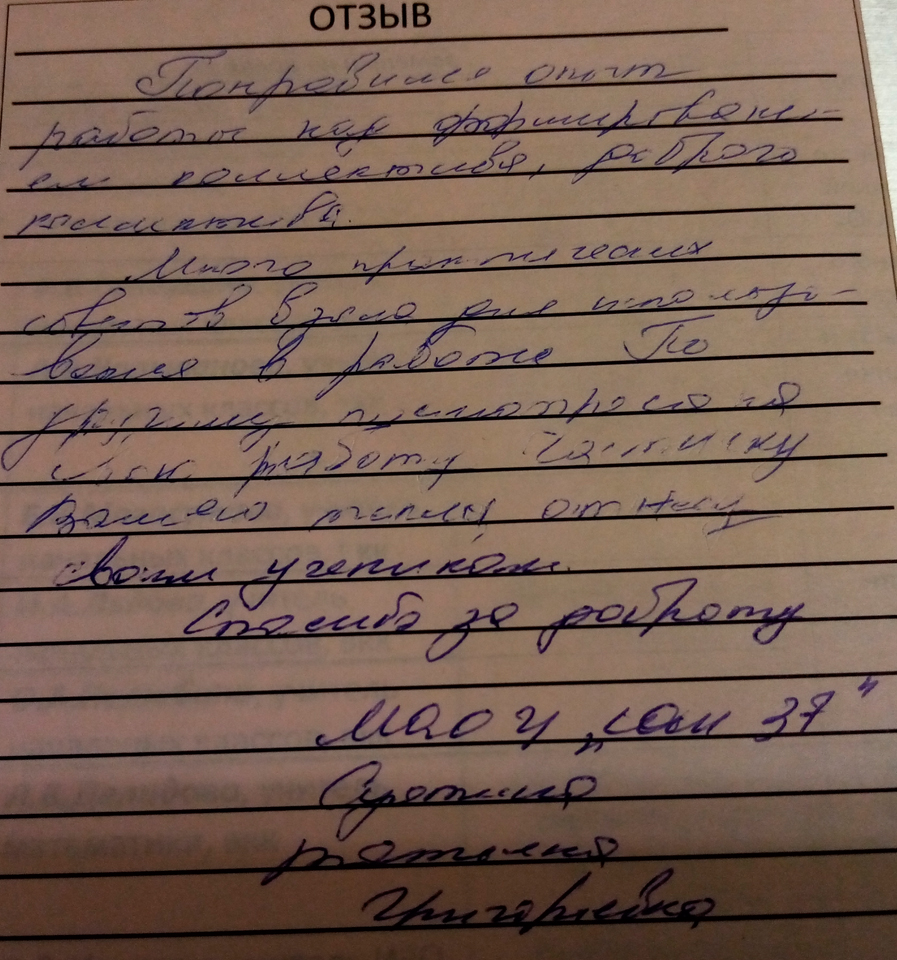 ОТЗЫВ
Понравился опыт
работы над формировани-
ем коллектива, доброго
коллектива.
Много практических
советов взяла для использо-
вания в работе По
другому посмотрела на
свою работу Частичку
Вашего тепла отнесу
своим ученикам.
Спасибо за доброту
МАОУ „СОШ 37"
Татьяна
Григорьевна